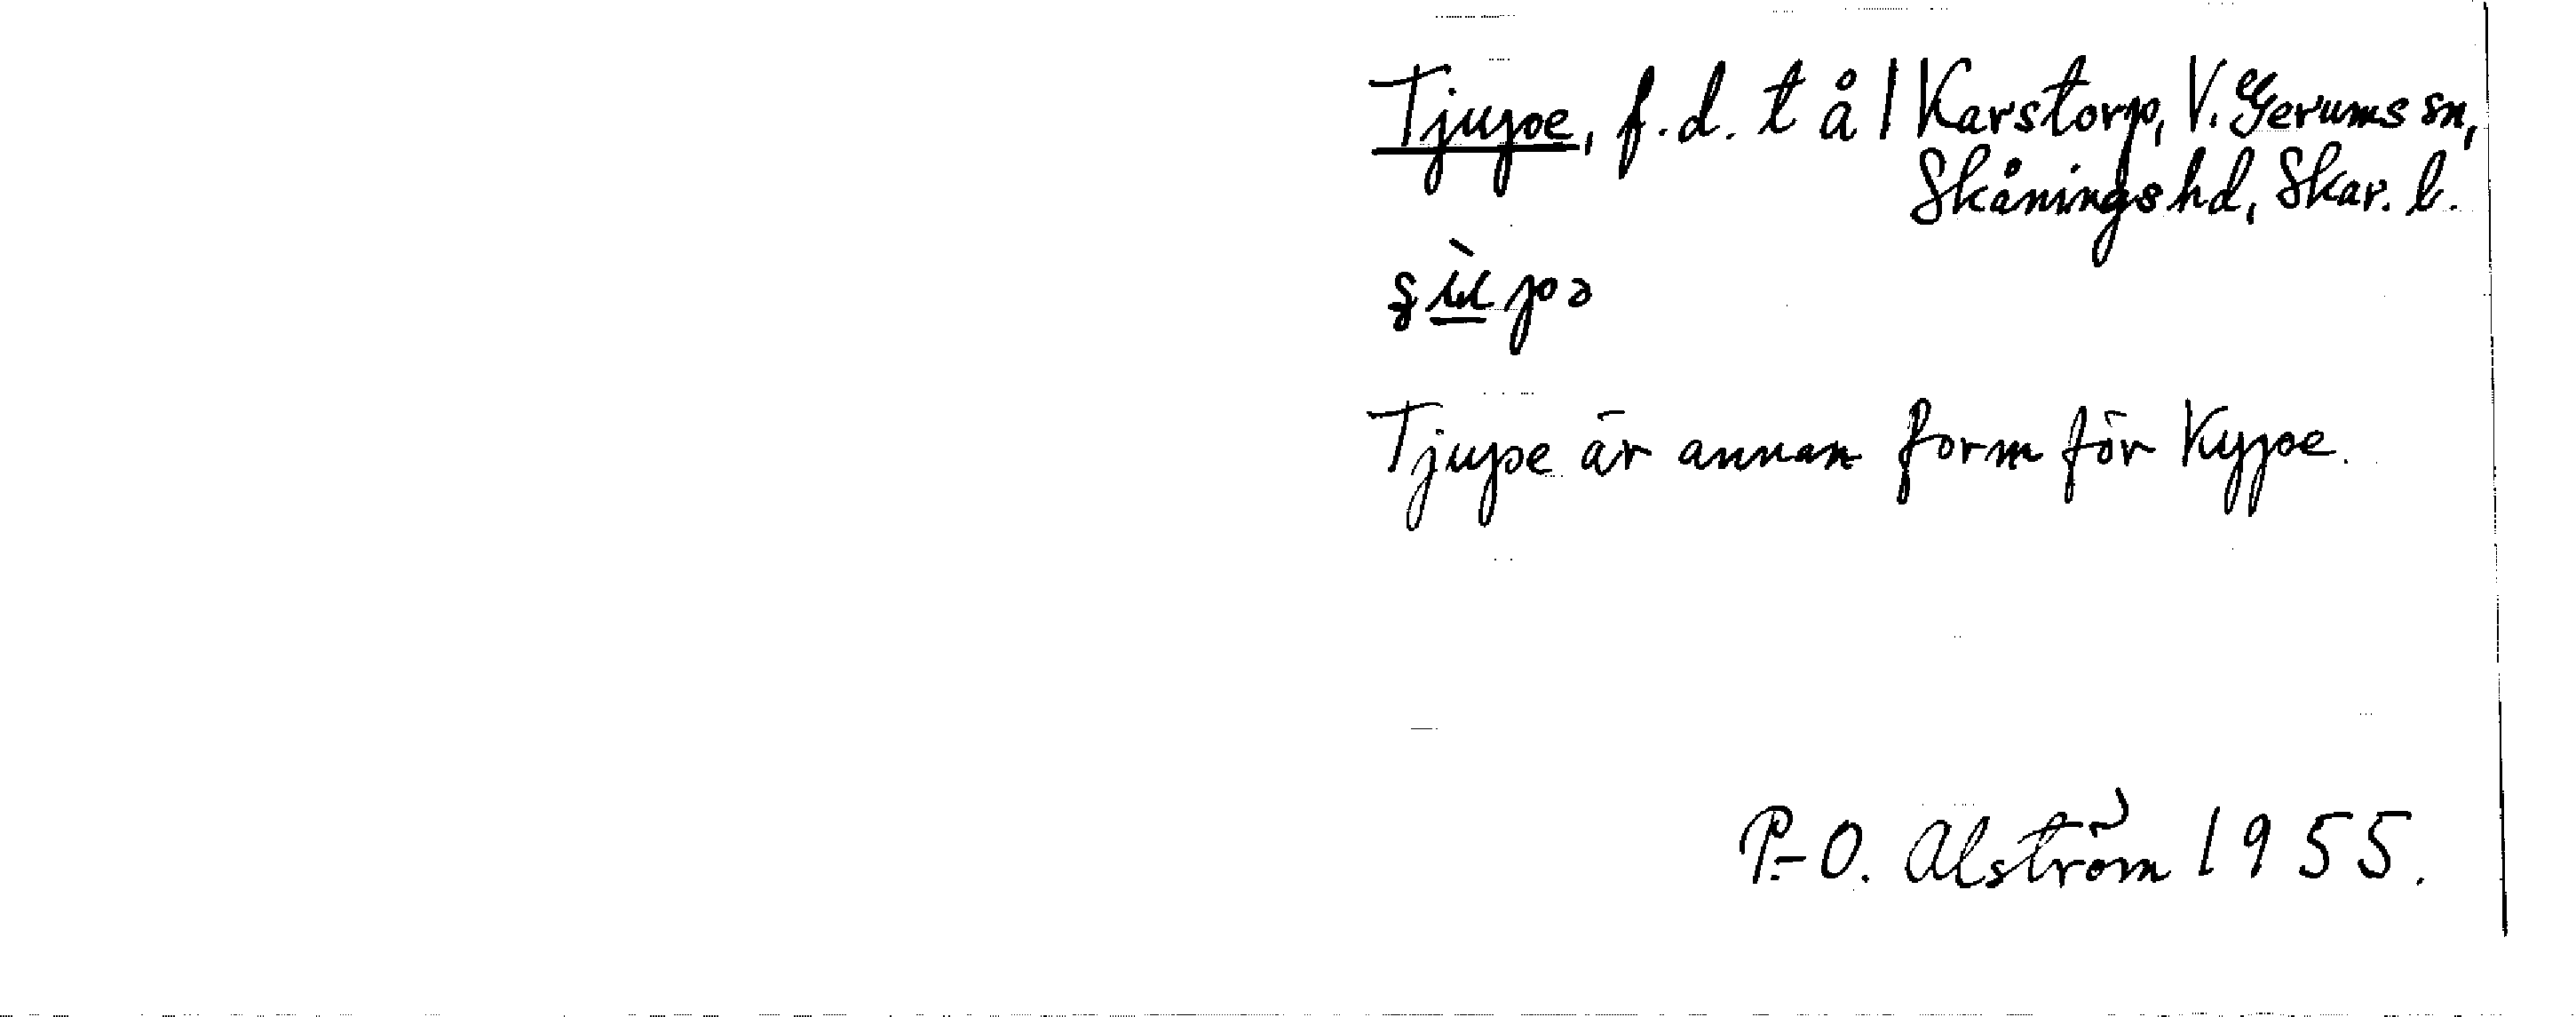 Tjupe, f.d. t å / Karstorp, V. Gerums sn,
Skånings hd, Skar. l.
Tjupe är annan form för Kype.
P.-O. Alström 1955.